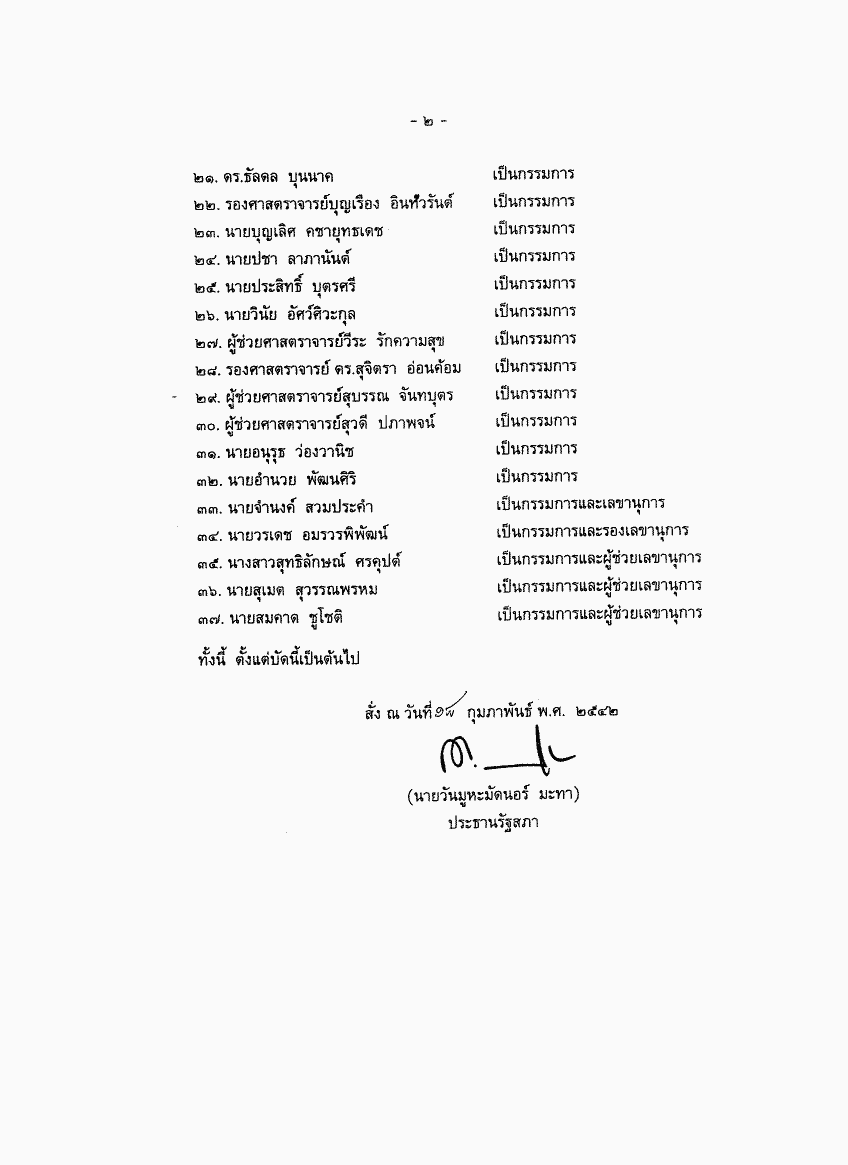 - ๒ -
๒๑. ดร.ธัลดล บุนนาค เป็นกรรมการ
๒๒. รองศาสตราจารย์บุญเรือง อินทัวรันต์ เป็นกรรมการ
๒๓. นายบุญเลิศ คชายุทธเดช เป็นกรรมการ
๒๔. นายปชา ลาภานันต์ เป็นกรรมการ
๒๕. นายประสิทธิ์ บุตรศรี เป็นกรรมการ
๒๖. นายวินัย อัศว์ศิวะกุล เป็นกรรมการ
๒๗. ผู้ช่วยศาสตราจารย์วีระ รักความสุข เป็นกรรมการ
๒๘. รองศาสตราจารย์ ดร.สุจิตรา อ่อนค้อม เป็นกรรมการ
๒๙. ผู้ช่วยศาสตราจารย์สุบรรณ จันทบุตร เป็นกรรมการ
๓๐. ผู้ช่วยศาสตราจารย์สุวดี ปภาพจน์ เป็นกรรมการ
๓๑. นายอนุรุธ ว่องวานิช เป็นกรรมการ
๓๒. นายอำนวย พัฒนศิริ เป็นกรรมการ
๓๓. นายจำนงค์ สวมประคำ เป็นกรรมการและเลขานุการ
๓๔. นายวรเดช อมรวรพิพัฒน์ เป็นกรรมการและรองเลขานุการ
๓๕. นางสาวสุทธิลักษณ์ ศรคุปต์ เป็นกรรมการและผู้ช่วยเลขานุการ
๓๖. นายสุเมต สุวรรณพรหม เป็นกรรมการและผู้ช่วยเลขานุการ
๓๗. นายสมคาด ชูโชติ เป็นกรรมการและผู้ช่วยเลขานุการ
ทั้งนี้ ตั้งแต่บัดนี้เป็นต้นไป
สั่ง ณ วันที่ ๑๘ กุมภาพันธ์ พ.ศ. ๒๕๔๒
(นายวันมูหะมัดนอร์ มะทา)
ประธานรัฐสภา